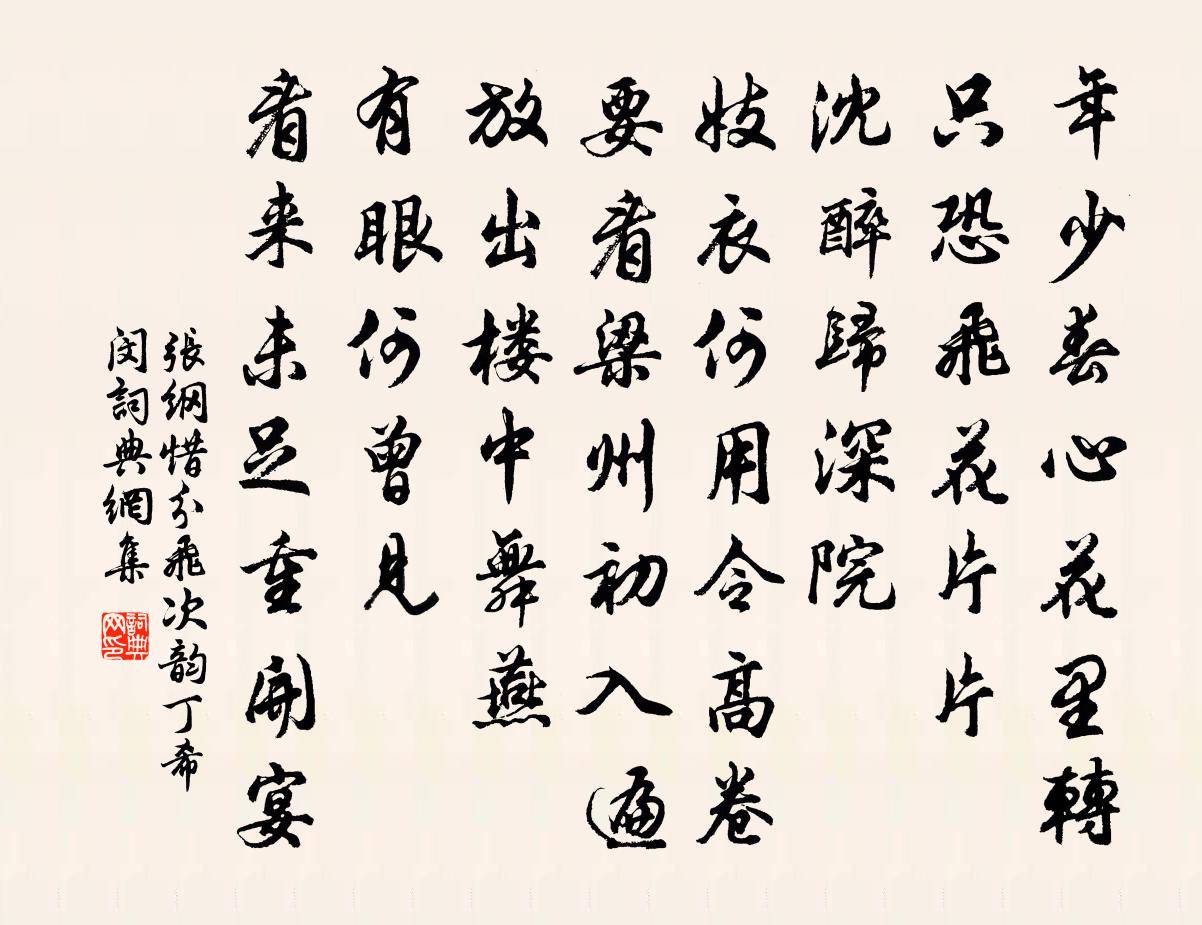 年少春心花里轉
只恐飛花片片
沈醉歸深院
妓衣何用令高卷
要看梁州初入遍
放出楼中舞燕
有眼何曾見
看来未足重開宴
張綱惜分飛次韵丁希
闵詞典網集
詞典
网印